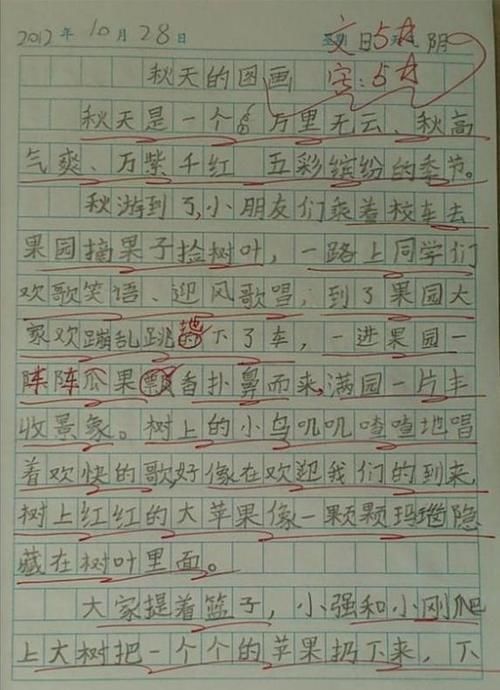 2012年10月28日 文日5材阴
字:5材
秋天的图画
秋天是一个 万里无云、秋高
气爽、万紫千红 五彩缤纷的季节。
秋游到了,小朋友们乘着校车去
果园摘果子捡树叶,一路上同学们
欢歌笑语、迎风歌唱;到了果园大
家欢蹦乱跳地下了车,一进果园一
阵阵瓜果香扑鼻而来,满园一片丰
收景象。树上的小鸟叽叽喳喳地唱
着欢快的歌,好像在欢迎我们的到来,
树上红红的大苹果像一颗颗玛瑙隐
藏在树叶里面。
大家提着篮子,小强和小刚爬
上大树把一个个的苹果扔下来,下